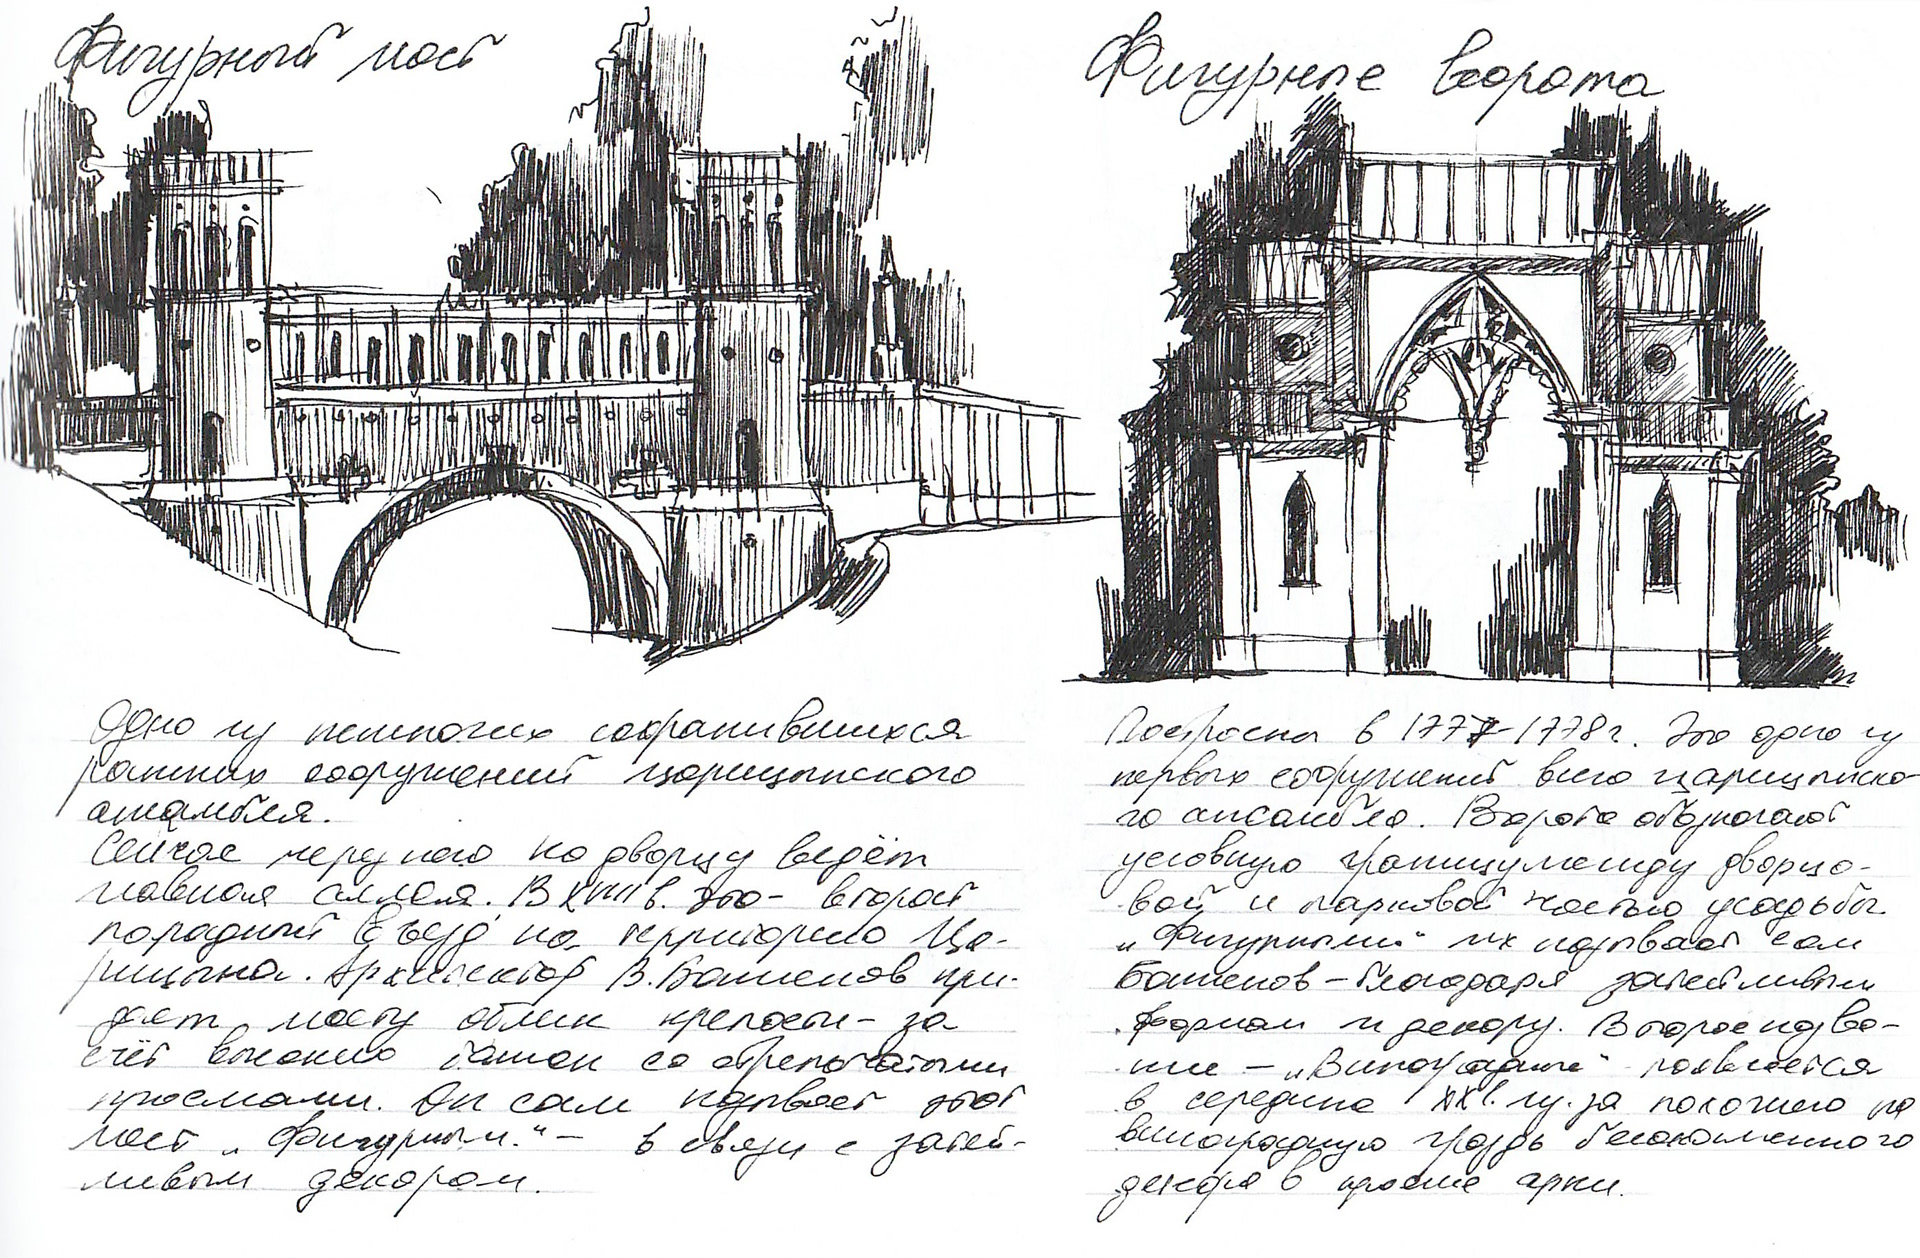 Фигурный мост
Одно из немногих сохранившихся
ранних сооружений царицынского
ансамбля.
Сейчас через него ко дворцу ведёт
главная аллея. В XVIII в. это - второй
парадный въезд на территорию Ца-
рицына. Архитектор В. Баженов при-
даёт мосту облик крепости - за
счёт высоких башен со стрельчатыми
проемами. Он сам называет этот
мост „Фигурным." - в связи с затей-
ливым декором.
Фигурные ворота
Построены в 1777-1778 г. Это одно из
первых сооружений всего царицынско-
го ансамбля. Ворота обозначают
условную границу между дворцо-
вой и парковой частью усадьбы.
„Фигурными" их называет сам
Баженов - благодаря затейливым
формам и декору. Второе назва-
ние - „Виноградные" появляется
в середине XX в. из-за похожего на
виноградную гроздь белокаменного
декора в проеме арки.